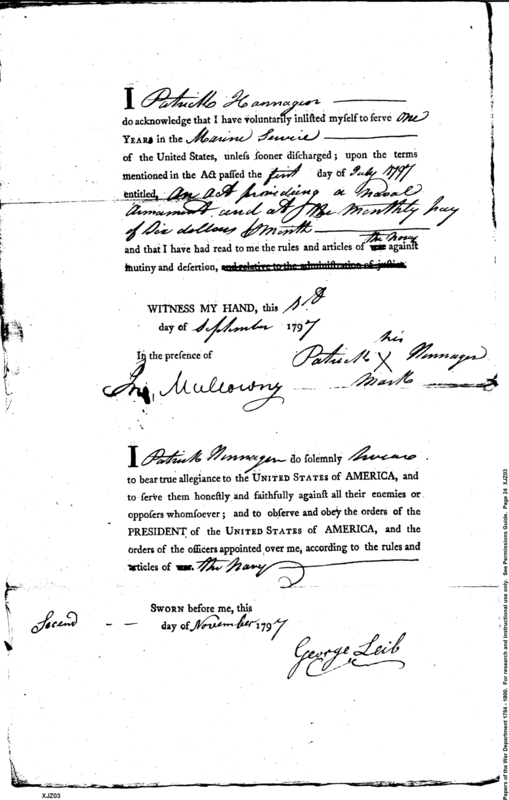 I Patrick Hannagen
do acknowledge that I have voluntarily inlisted myself to serve one
YEARS in the Marine Service
of the United States, unless sooner discharged; upon the terms
mentioned in the Act passed the first day of July 1797
entitled, An act providing a Naval
Armament and at the Monthly pay
of Six dollars Month
and that I have had read to me the rules and articles of war the Navy against
mutiny and desertion, and relative to the administration of justice.
WITNESS MY HAND, this
day of September 1797
In the presence of
his
Patrick X Nennager
mark
Jno. Mullowny
I Patrick Nennager do solemnly swear
to bear true allegiance to the UNITED STATES of AMERICA, and
to serve them honestly and faithfully against all their enemies or
opposers whomsoever; and to observe and obey the orders of the
PRESIDENT of the UNITED STATES of AMERICA, and the
orders of the officers appointed over me, according to the rules and
articles of war. the Navy
SWORN before me, this
Second day of November 1797
George Leib
XJZ03
Papers of the War Department 1784 - 1800. For research and instructional use only. See Permissions Guide. Page 24 XJZ03